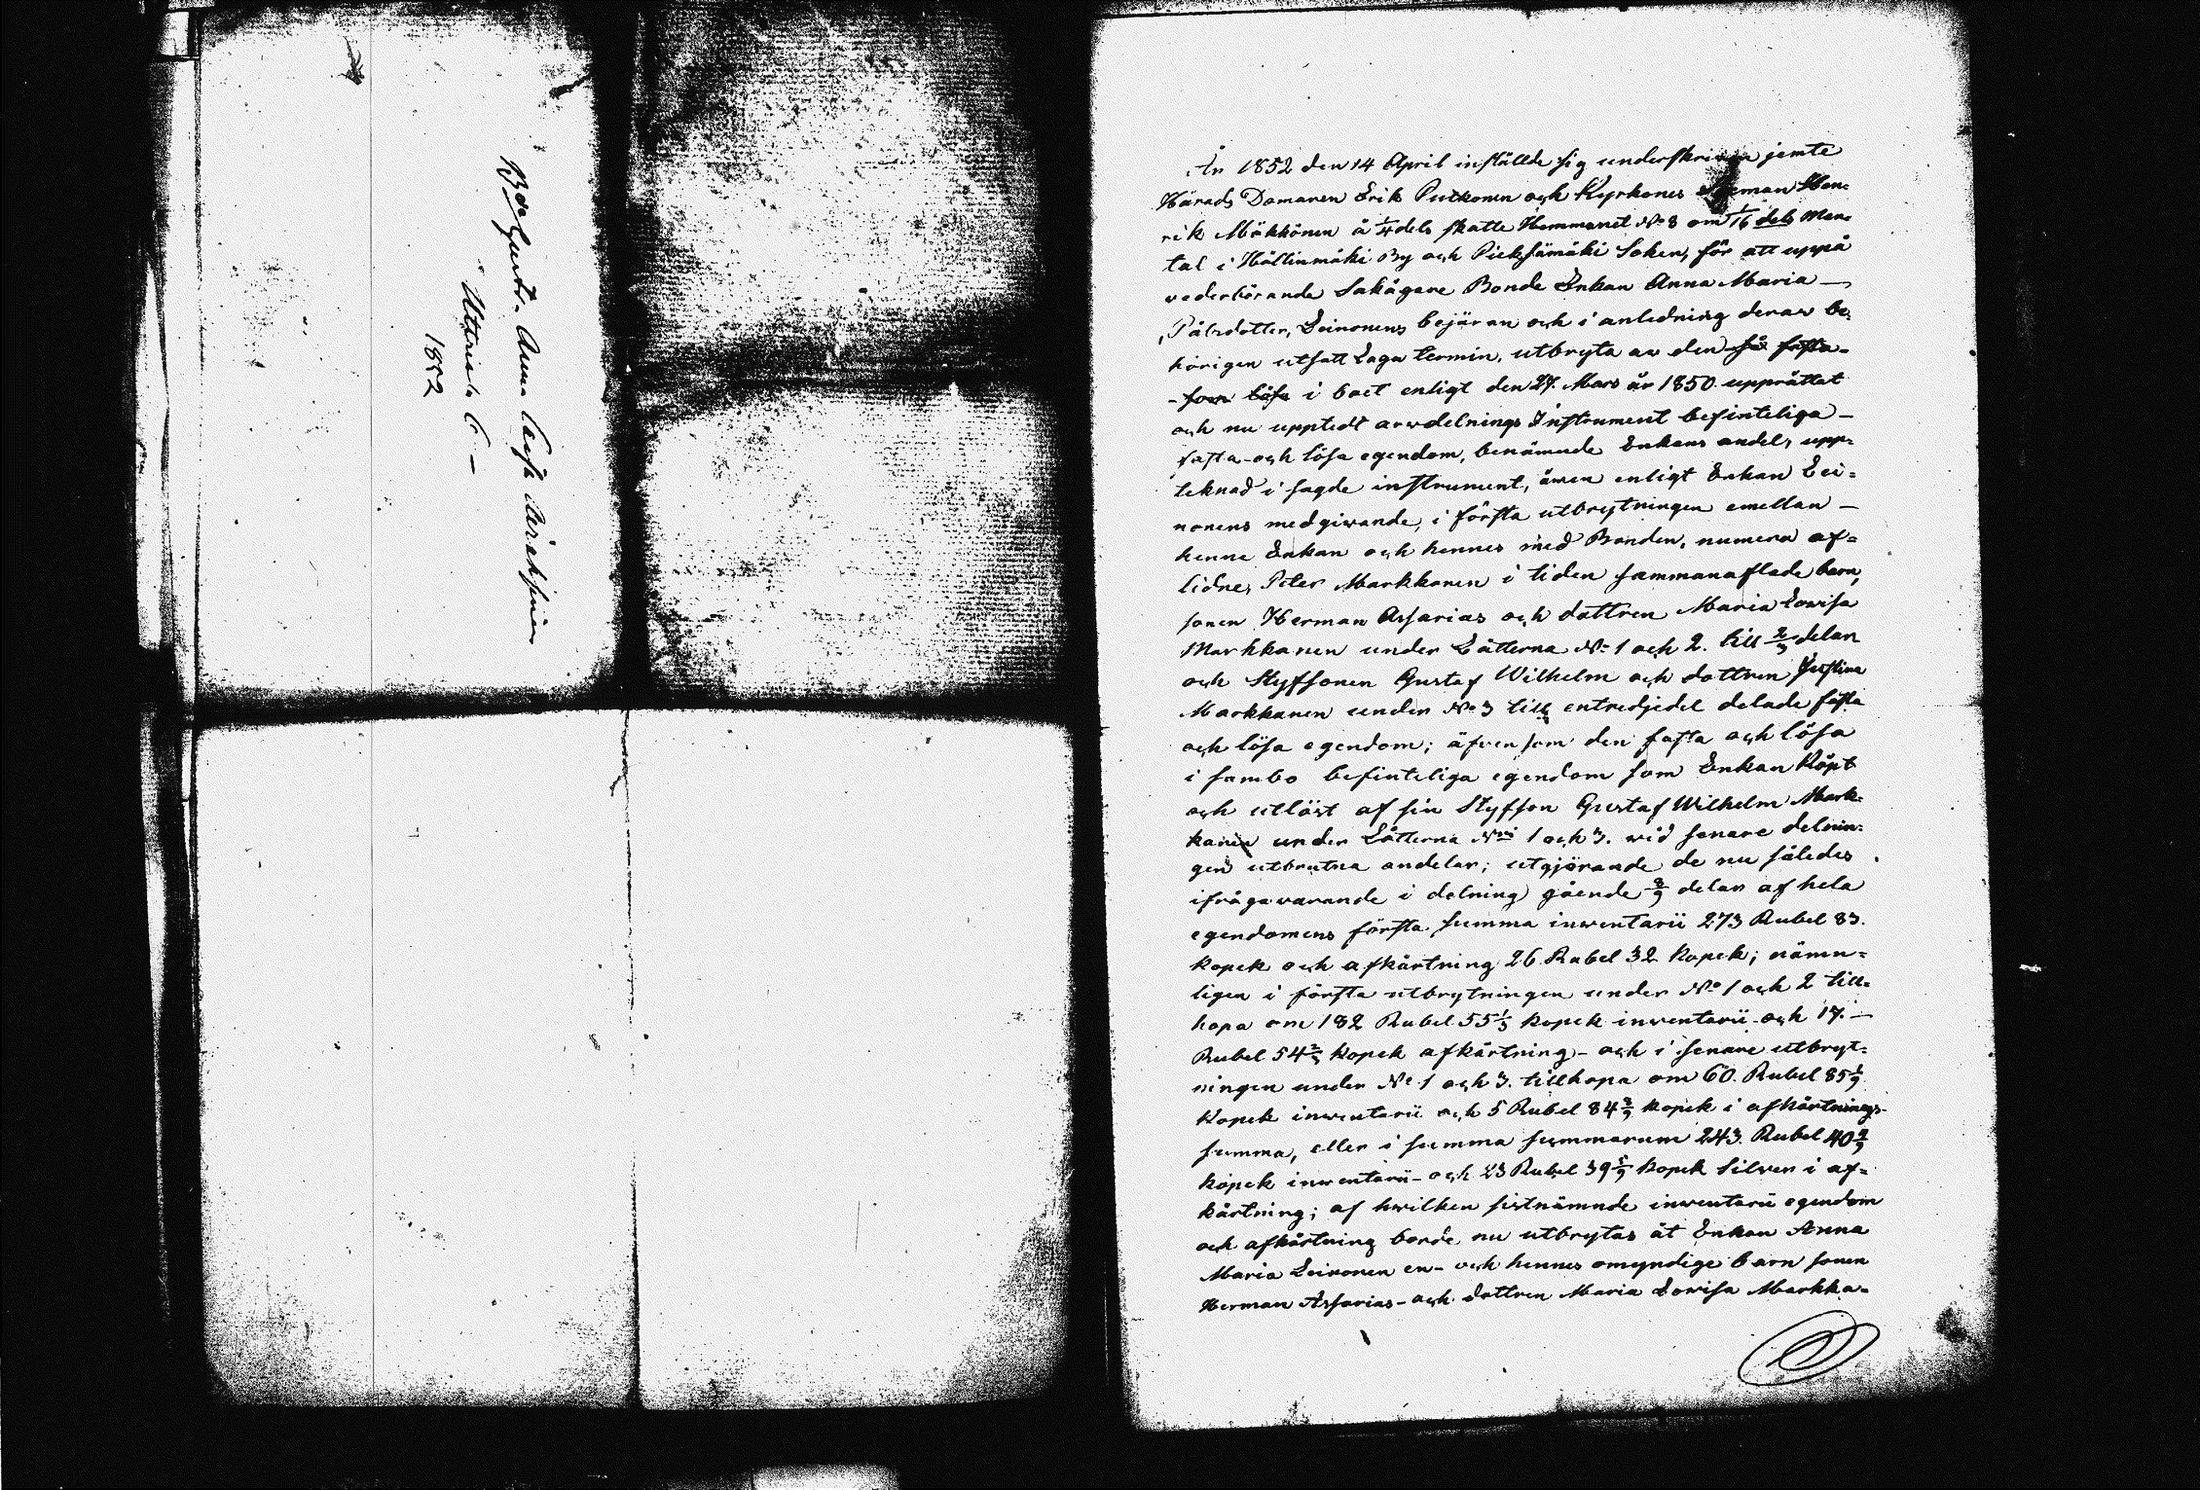 Bde Gustr. Anna Caisa
Utterials C. -
1852
År 1852 den 14 April inställde sig underskrifven jemte
Härads Domaren Erik Putkonen och Kyrkones Nämman Hen-
rik Mäkkönen å 1/4 dels skatte Hemmanet No 8 om 1/16 dels Man-
tal i Hällinmäki By och Pieksämäki Soken, för att uppå
vederbörande Sakägare Bonde Enkan Anna Maria —
Pålsdotter, Leinonens begäran och i anledning deraf be-
hörigen utsatt Laga termin, utbryta av den så fasta-
- som lösa i boet enligt den 27. Mars år 1850. upprättat
och nu uppteedt arvdelnings Instrument befinteliga —
fasta- och lösa egendom, benämnde Enkans andel, upp-
teknad i sagde instrument, äwen enligt Enkan Lei-
nonens medgivande, i första utbrytningen emellan —
henne Enkan och hennes med Bonden, numera af-
lidne, Peter Markkanen i tiden sammanaflade barn,
sonen Herman Assarias och dottren Maria Lovisa
Markkanen under Lotterna No 1 och 2. till 2/3 delar
och Styfsonen Gustaf Wilhelm och dottren Justina
Markkanen under No 3 till entredjedel delade fasta
och lösa egendom; äfvensom den fasta och lösa
i sambo befinteliga egendom som Enkan Köpt
och utlöst af sin Styfson Gustaf Wilhelm Mark-
kanen under Lotterna Nris 1 och 3. wid senare delnin-
gen utbrutna andelar; utgjörande de nu således
ifrågavarande i delning gående 8/9 delar af hela
egendomens första summa inventarii 273 Rubel 83.
kopek och afkortning 26 Rubel 32 kopek; nämn-
ligen i första utbrytningen under No 1 och 2 till-
hopa om 182 Rubel 55 1/3 kopek inventarii- och 17. —
Rubel 54 2/3 kopek afkortning- och i senare utbryt-
ningen under No 1 och 3. tillhopa om 60. Rubel 85 1/9
kopek inventarii och 5 Rubel 84 8/9 kopek i afkortnings-
summa, eller i summa summarum 243. Rubel 40 4/9
kopek inventarii- och 23 Rubel 39 5/9 kopek Silver i af-
kortning; af hwilken sistnämnde inventarii egendom
och afkortning borde nu utbrytas åt Enkan Anna
Maria Leinonen en- och hennes omyndige barn sonen
Herman Assarias- och dottren Maria Lovisa Markka-